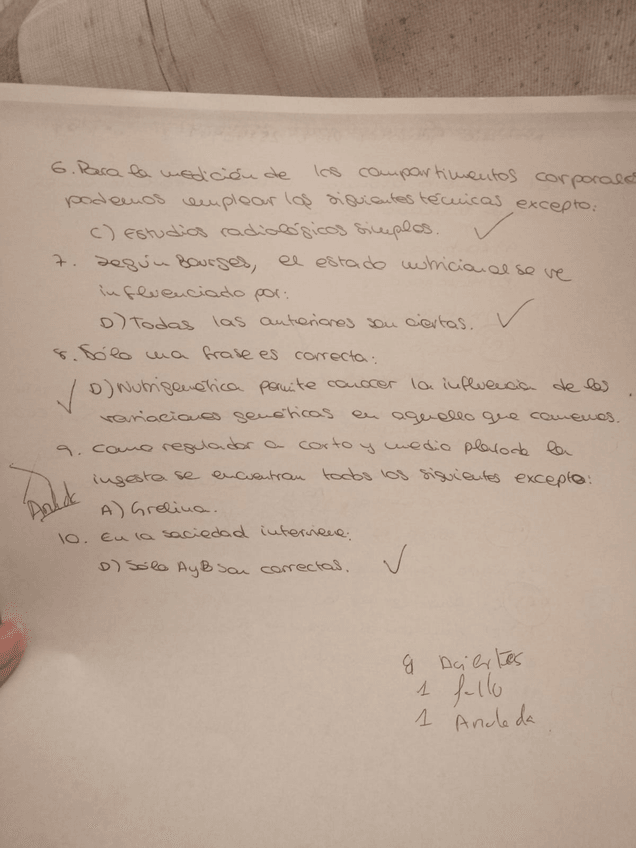 6. Para la medición de los compartimentos corporales
podemos emplear las siguientes técnicas excepto:
C) estudios radiológicos simples.
7. Según Bourges, el estado nutricional se ve
influenciado por:
D) Todas las anteriores son ciertas.
8. Sólo una frase es correcta:
D) Nutrigenética permite conocer la influencia de las
variaciones genéticas en aquello que comemos.
9. Como regulador a corto y medio plazo de la
ingesta se encuentran todos los siguientes excepto:
A) Grelina.
10. En la saciedad interviene:
D) Sólo A y B son correctas.
8 Aciertos
1 fallo
1 Anulada